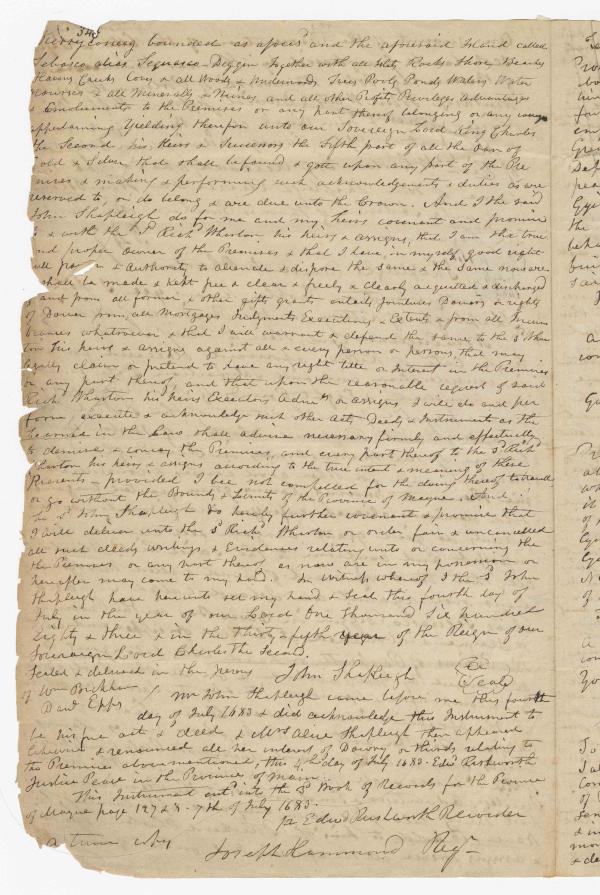 348
Merryconeg bounded as afores.d and the aforesaid Island called
Sebasco alias Sequasco-Deggin Together with all Islets Rocks Shore Beaches
Havens Creeks Coves & all Woods & Underwoods Trees Pools Ponds Waters Water
courses & all Minerals & Mines, and all other Profits, Priviledges Advantages
& Emoluments to the Premises or any part thereof belonging or any ways
appertaining Yielding therefrom unto our Sovereign Lord King Charles
the Second his Heirs & Successors the fifth part of all the Oar of
Gold & Silver that shall be found & gott upon any part of the Pre
mises & making & performing such acknowledgements & duties as are
reserved to, or do belong & are due unto the Crown. And I the said
John Shapleigh do for me and my heirs covenant and promise
to & with the Sd. Richd. Wharton his heirs & assigns, that I am the true
and proper owner of the Premises & that I have in myself good right
full power & Authority to alienate & dispose the same & the same now are
& shall be made & kept free & clear & freely & clearly acquitted & discharged
of and from all former & other gifts grants entails Jointures Dowers & rights
of Dower from all Mortgages Judgments Executions & Extents & from all Incum
brances whatsoever & that I will warrant & defend the same to the Sd. Whar
ton his heirs & assigns against all & every person or persons, that may
legally claim or pretend to have any right title or Interest in the Premises
or any part thereof, and that upon the reasonable request of said
Richd. Wharton his heirs Executors Admrs. or assigns I will do and per
form, execute & acknowledge such other Acts Deeds & Instruments as the
Learned in the Law shall advise necessary firmly and effectually
to demise & convey the Premises, and every part thereof to the Sd. Richd.
Wharton his heirs & assigns according to the true intent & meaning of these
Presents - provided I bee not compelled for the doing thereof to travell
or go without the Bounds & Limits of the Province of Mayne. And I
the Sd. John Shapleigh do hereby further covenant & promise that
I will deliver unto the Sd. Richd. Wharton or order fair & uncancelled
all such deeds writings & Evidences relating unto or concerning the
the Premises or any part thereof as now are in my possession or
hereafter may come to my hand. In witness whereof I the Sd. John
Shapleigh have hereunto set my hand & Seal this fourth day of
July in the year of our Lord One thousand Six hundred
Eighty & three & in the thirty & fifth year of the Reign of our
Sovereign Lord Charles the Second
Sealed & delivered in the presence John Shapleigh Seal
of Wm Bickham
Davd Epps
Mr John Shapleigh came before me this fourth
day of July 1683 & did acknowledge this Instrument to
be his free act & deed & Mrs Alice Shapleigh then appeared
likewise & renounced all her interest of Dowry or thirds relating to
the Premises abovementioned, this 4th day of July 1683. Edwd Rishworth
Justice Peace in the Province of Main
This Instrument entd. into the 3d Book of Records for the Province
of Mayne page 127 & 8. 7th of July 1683.
pr Edwd Rushworth Recorder
a true copy
Joseph Hammond Regr.